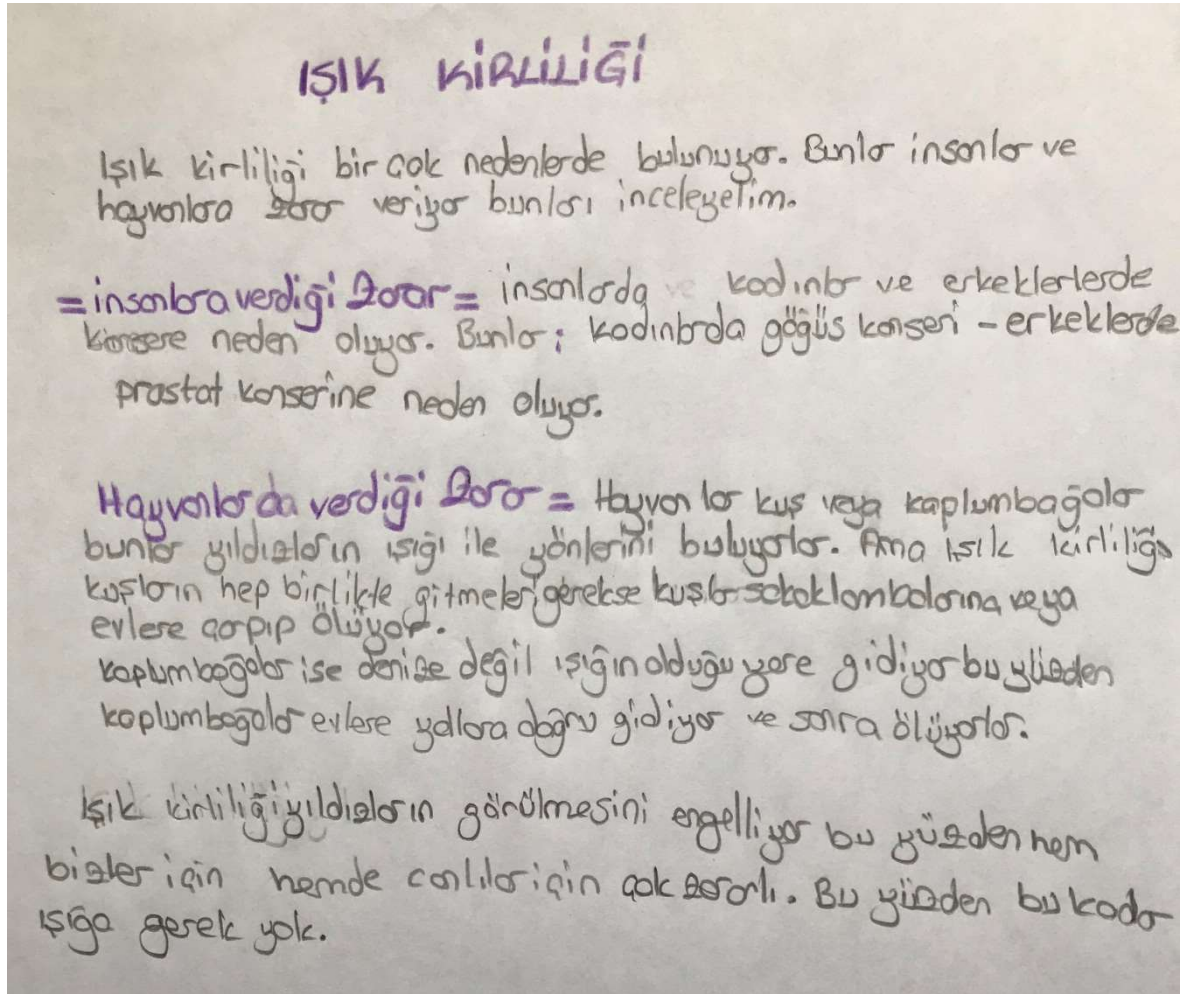 IŞIK KİRLİLİĞİ
Işık kirliliği bir çok nedenlerde bulunuyor. Bunlar insanlar ve
hayvanlara zarar veriyor bunları inceleyelim.
= insanlara verdiği Zarar = insanlarda ve kadınlar ve erkeklerlerde
kansere neden oluyor. Bunlar; kadınlarda göğüs kanseri - erkeklerde
prastat kanserine neden oluyor.
Hayvanlarda verdiği Zarar = Hayvanlar kuş veya kaplumbağalar
bunlar yıldızların ışığı ile yönlerini buluyorlar. Ama ışık kirliliği
kuşların hep birlikte gitmeleri gerekse kuşlar sokak lambalarına veya
evlere çarpıp ölüyor.
kaplumbağalar ise denize değil ışığın olduğu yere gidiyor bu yüzden
kaplumbağalar evlere yollara doğru gidiyor ve sonra ölüyorlar.
Işık kirliliği yıldızların görülmesini engelliyor bu yüzden hem
bizler için hemde canlılar için çok zararlı. Bu yüzden bu kadar
ışığa gerek yok.